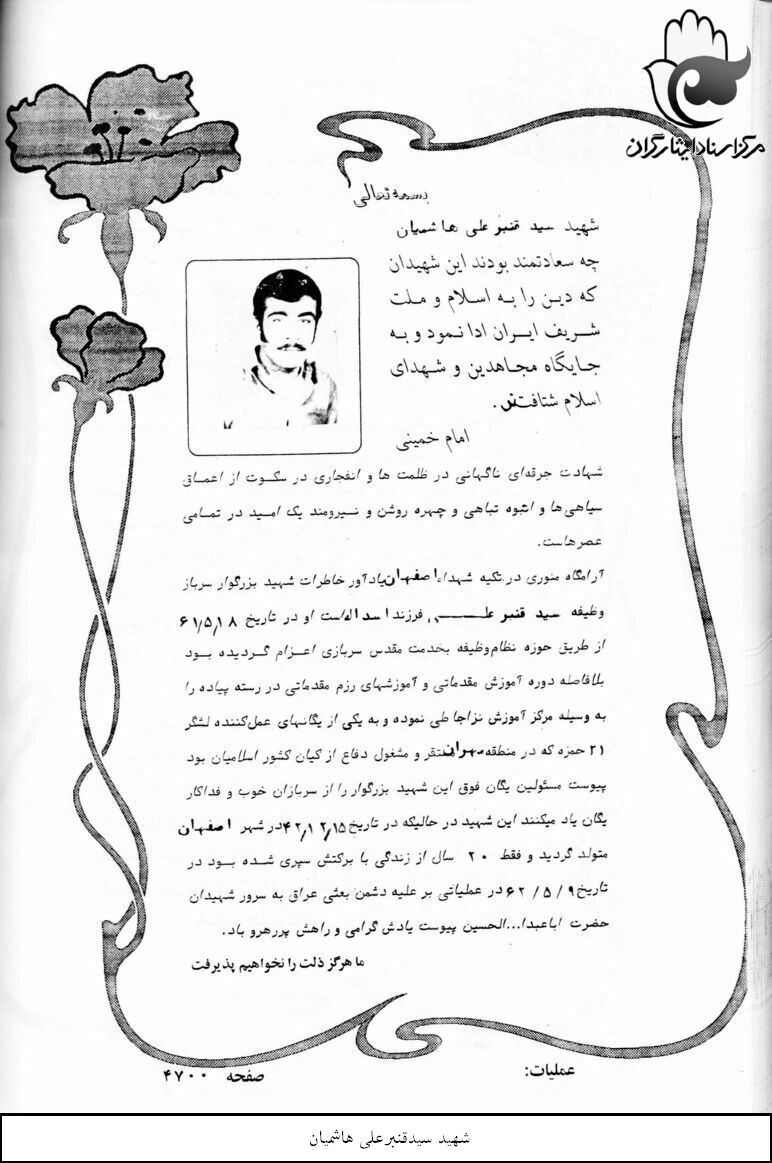 مرکز اسناد ایثارگران
بسمه تعالی
شهید سید قنبر علی هاشمیان
چه سعادتمند بودند این شهیدان
که دین را به اسلام و ملت
شریف ایران ادا نمود و به
جایگاه مجاهدین و شهدای
اسلام شتافتند.
امام خمینی
شهادت جرقه‌ای ناگهانی در ظلمت ها و انفجاری در سکوت از اعماق
سیاهی‌ها و انبوه تباهی و چهره روشن و نیرومند یک امید در تمامی
عصرهاست.
آرامگاه منوری در تکیه شهداء اصفهان یادآور خاطرات شهید بزرگوار سرباز
وظیفه سید قنبر علی فرزند اسداله است او در تاریخ ۶۱/۵/۱۸
از طریق حوزه نظام‌وظیفه بخدمت مقدس سربازی اعزام گردیده بود
بلافاصله دوره آموزش مقدماتی و آموزشهای رزم مقدماتی در رسته پیاده را
به وسیله مرکز آموزش نزاجا طی نموده و به یکی از یگانهای عمل‌کننده لشگر
۲۱ حمزه که در منطقه مهران مستقر و مشغول دفاع از کیان کشور اسلامیان بود
پیوست مسئولین یگان فوق این شهید بزرگوار را از سربازان خوب و فداکار
یگان یاد میکنند این شهید در حالیکه در تاریخ ۴۲/۱۲/۱۵ در شهر اصفهان
متولد گردید و فقط ۲۰ سال از زندگی با برکتش سپری شده بود در
تاریخ ۶۲/۵/۹ در عملیاتی بر علیه دشمن بعثی عراق به سرور شهیدان
حضرت اباعبدا...الحسین پیوست یادش گرامی و راهش پررهرو باد.
ما هرگز ذلت را نخواهیم پذیرفت
عملیات:
صفحه ۴۷۰۰
شهید سیدقنبرعلی هاشمیان